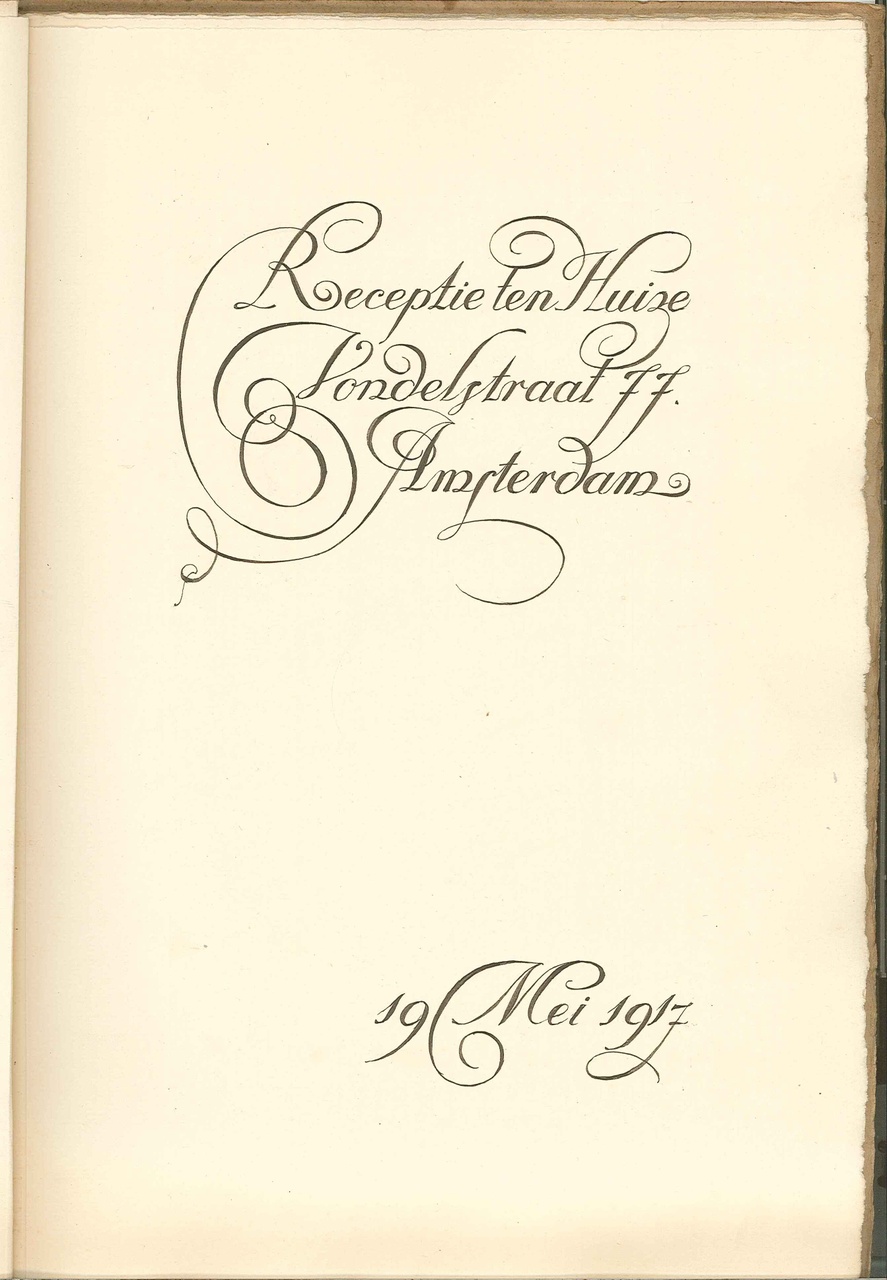 Receptie ten Huize
Vondelstraat 77.
Amsterdam
19 Mei 1917